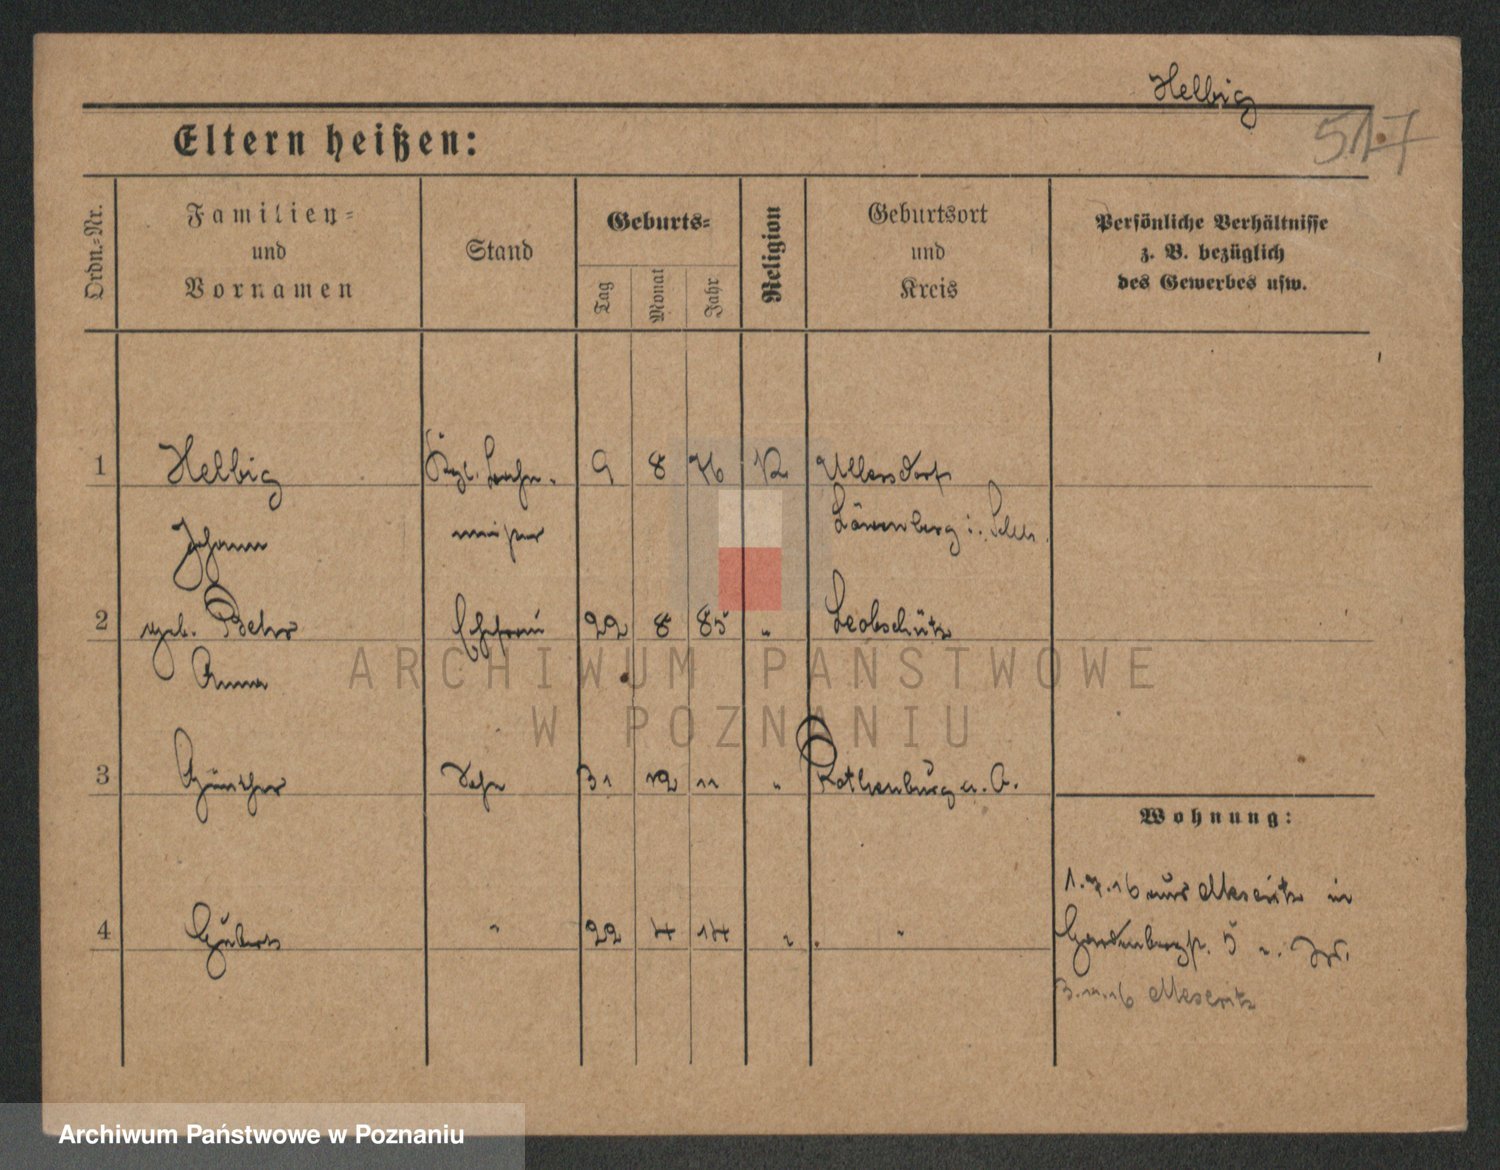 Helbig
517
Eltern heißen:
Ordn.-Nr.
Familien-
und
Vornamen
Stand
Geburts-
Tag
Monat
Jahr
Religion
Geburtsort
und
Kreis
Persönliche Verhältnisse
z. B. bezüglich
des Gewerbes usw.
1 Helbig Kgl. 9 8 76 Ullersdorf
Johann meister Löwenberg i. Schles.
2 geb. Behr Ehefrau 22 8 85 " Leobschütz
Anna
3 Günther Sohn 31 12 11 " Rothenburg a. O.
Wohnung:
1.7.16 aus Meseritz in
4 " 22 4 14 " "
5
Meseritz
ARCHIWUM PAŃSTWOWE
W POZNANIU
Archiwum Państwowe w Poznaniu